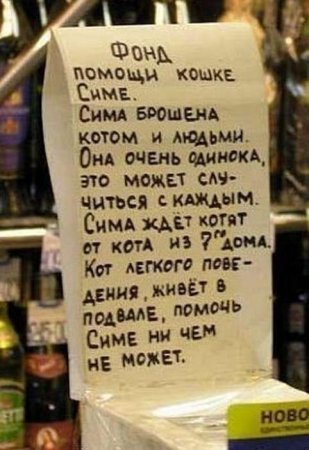 ФОНД
ПОМОЩИ КОШКЕ
СИМЕ.
СИМА БРОШЕНА
КОТОМ И ЛЮДЬМИ.
ОНА ОЧЕНЬ ОДИНОКА,
ЭТО МОЖЕТ СЛУ-
ЧИТЬСЯ С КАЖДЫМ.
СИМА ЖДЁТ КОТЯТ
ОТ КОТА ИЗ 7го ДОМА.
КОТ ЛЕГКОГО ПОВЕ-
ДЕНИЯ, ЖИВЁТ В
ПОДВАЛЕ, ПОМОЧЬ
СИМЕ НИ ЧЕМ
НЕ МОЖЕТ.
НОВО